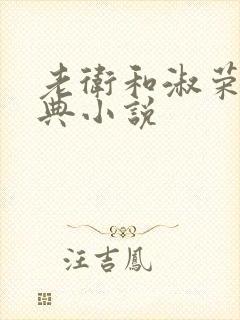 老衛和淑荣
典小説
汪吉鳳